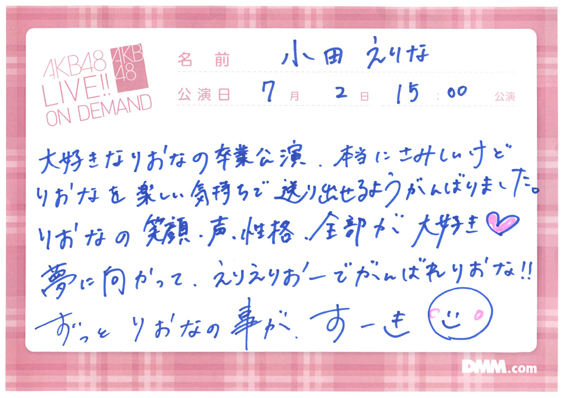 AKB48
LIVE!!
ON DEMAND
AKB
48
名前 小田 えりな
公演日 7月 2日 15:00 公演
大好きなりおなの卒業公演、本当にさみしいけど
りおなを楽しい気持ちで送り出せるようがんばりました。
りおなの笑顔、声、性格、全部が大好き♡
夢に向かって、えりえりおーでがんばれりおな!!
ずっとりおなの事が、すーき
DMM.com